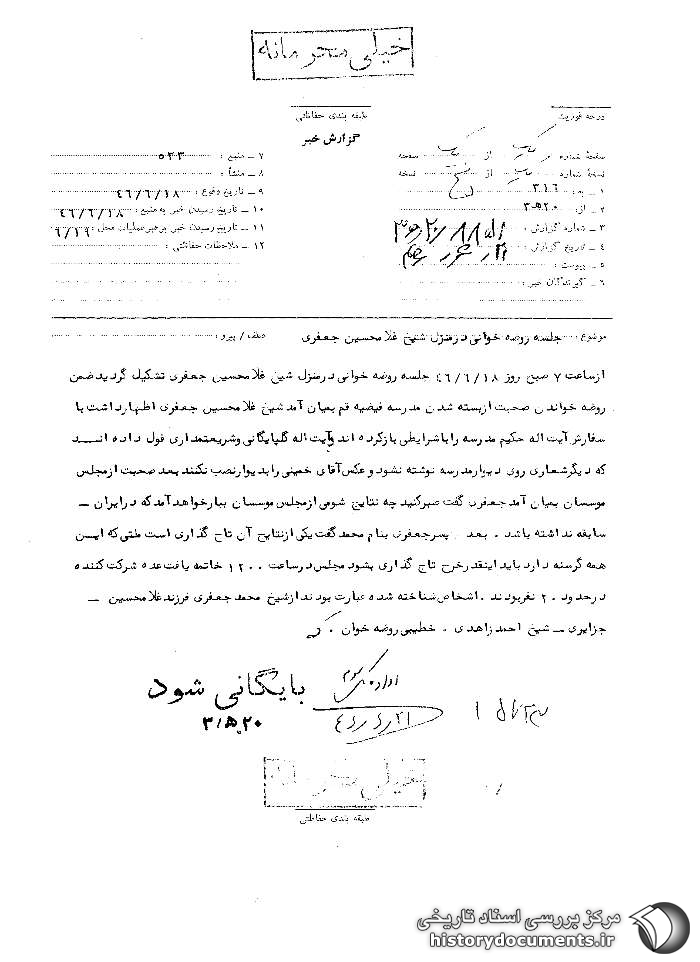 خیلی محرمانه
درجه فوریت
طبقه بندی حفاظتی
گزارش خبر
صفحهٔ شماره یک از یک صفحه
نسخهٔ شماره از نسخه
۱ ـ به : ۳۱۶
۲ ـ از : ۲۰ﻫ۳
۳ ـ شماره گزارش :
۴ ـ تاریخ گزارش :
۵ ـ پیوست :
۶ ـ گیرندگان خبر :
۷ ـ منبع : ۵۳۳
۸ ـ منشأ :
۹ ـ تاریخ وقوع : ۴۶/۶/۱۸
۱۰ ـ تاریخ رسیدن خبر به منبع : ۴۶/۶/۱۸
۱۱ ـ تاریخ رسیدن خبر برهبر عملیات محل :
۱۲ ـ ملاحظات حفاظتی :
موضوع : جلسه روضه خوانی درمنزل شیخ غلامحسین جعفری
عطف / پیرو :
ازساعت ۷ صبح روز ۴۶/۶/۱۸ جلسه روضه خوانی درمنزل شیخ غلامحسین جعفری تشکیل گردید ضمن
روضه خواندن صحبت ازبسته شدن مدرسه فیضیه قم بمیان آمد شیخ غلامحسین جعفری اظهارداشت با
سفارش آیت اله حکیم مدرسه را باشرایطی بازکرده اند وآیت اله گلپایگانی وشریعتمداری قول داده انـد
که دیگرشعاری روی دیوارمدرسه نوشته نشود وعکس آقای خمینی را بدیوارنصب نکنند بعد صحبت ازمجلس
موسسان بمیان آمد جعفری گفت صبرکنید چه نتایج شومی ازمجلس موسسان ببارخواهد آمد که درایران ـ
سابقه نداشته باشد . بعد پسرجعفری بنام محمد گفت یکی ازنتایج آن تاج گذاری است ملتی که ایـن
همه گرسنه دارد باید اینقدرخرج تاج گذاری بشود مجلس درساعت ۱۲۰۰ خاتمه یافت عده شرکت کننده
درحدود ۲۰ نفربودند . اشخاص شناخته شده عبارت بودند ازشیخ محمد جعفری فرزند غلامحسین ـ
جزایری ـ شیخ احمد زاهدی . خطیبی روضه خوان .
اداره کل سوم
بایگانی شود
۲۰ﻫ۳
۴۶/۶/۲۱
خیلی محرمانه
طبقه بندی حفاظتی
مرکز بررسی اسناد تاریخی
historydocuments.ir